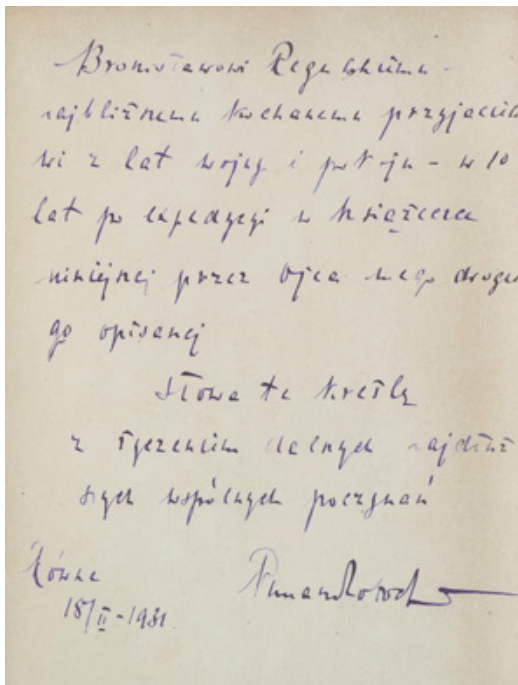 Bronisławowi Regulskiemu -
najbliższemu kochanemu przyjacielo
wi z lat wojny i pokoju - w 10
lat po expedycyi w książeczce
niniejszej przez Ojca mego drogie
go opisanej
Słowa te kreślę
z życzeniem dalszych najdłuż
szych wspólnych poczynań
Równe
18/II - 1931